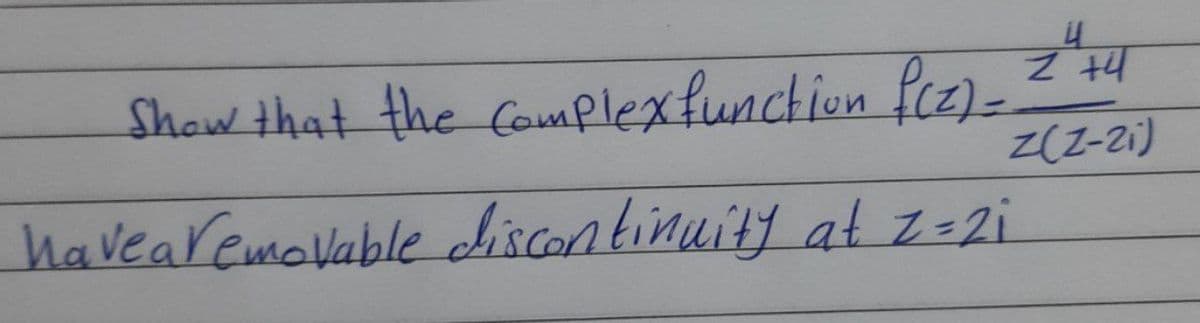 Show that the Complex function f(z) = z⁴+4 / z(z-2i)
have a removable discontinuity at z=2i